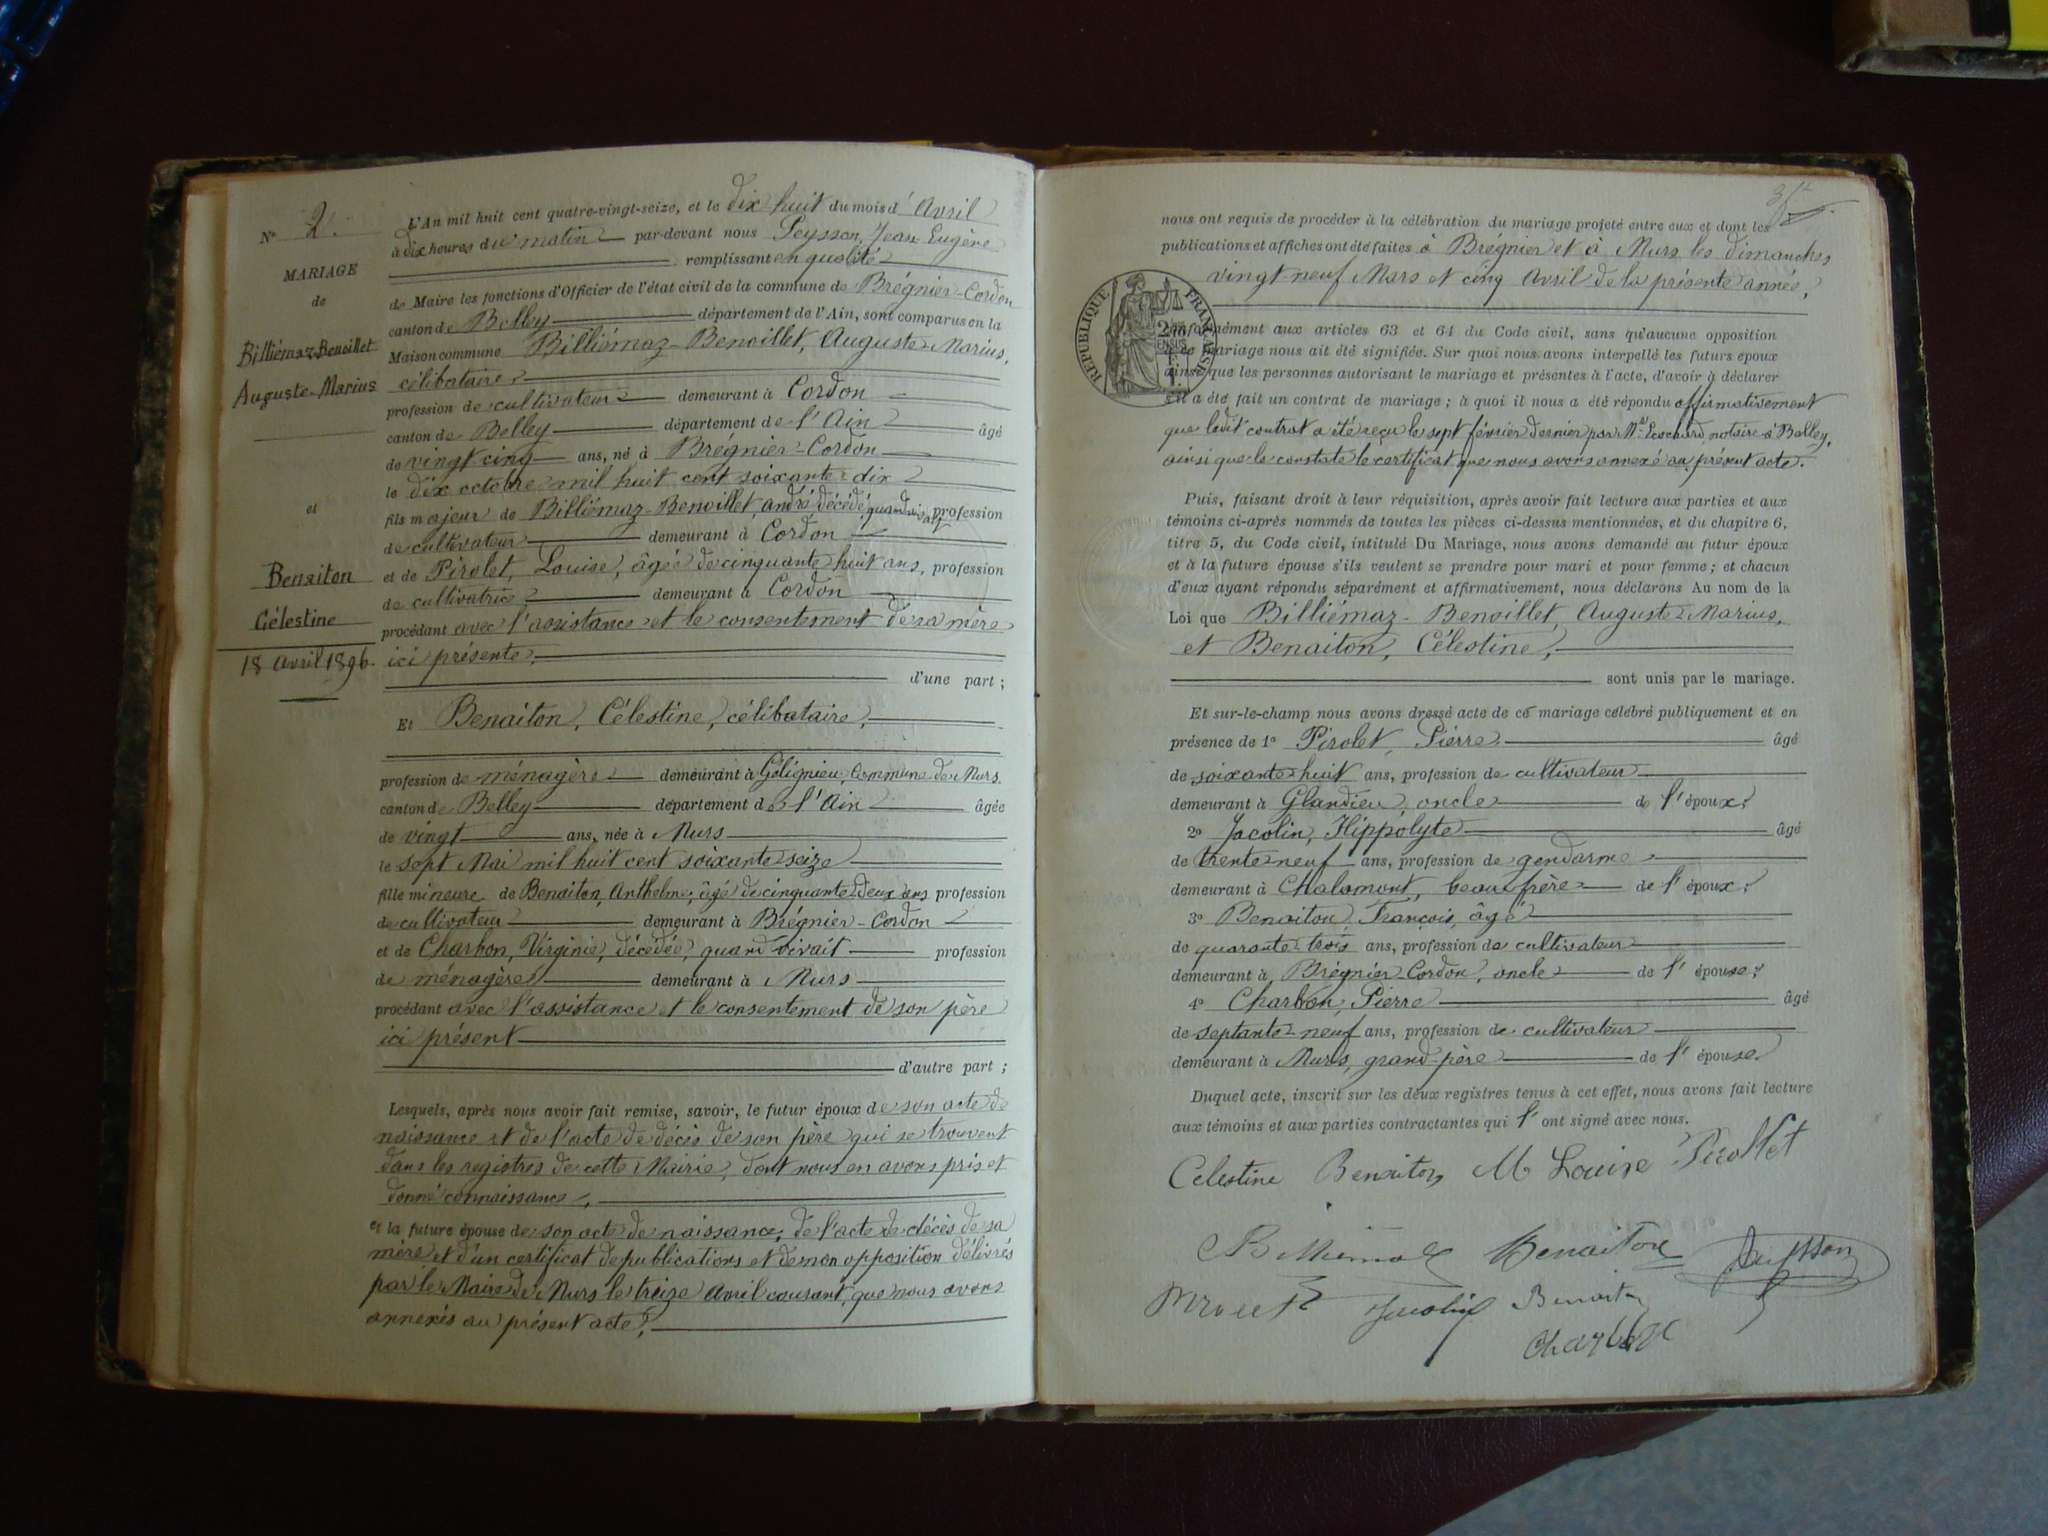 N° 2.
MARIAGE
de
Billiémaz-Benoillet
Auguste-Marius
et
Benaiton
Célestine
18 Avril 1896.
L'An mil huit cent quatre-vingt-seize, et le dix huit du mois d'Avril
à dix heures du matin par-devant nous Peysson, Jean Eugène
remplissant en qualité
de Maire les fonctions d'Officier de l'état civil de la commune de Brégnier-Cordon
canton de Belley département de l'Ain, sont comparus en la
Maison commune Billiémaz-Benoillet, Auguste-Marius,
célibataire,
profession de cultivateur demeurant à Cordon
canton de Belley département de l'Ain âgé
de vingt cinq ans, né à Brégnier-Cordon
le dix octobre mil huit cent soixante-dix
fils majeur de Billiémaz-Benoillet, andré décédé quand vivait profession
de cultivateur demeurant à Cordon
et de Pirolet, Louise, âgée de cinquante huit ans, profession
de cultivatrice demeurant à Cordon
procédant avec l'assistance et le consentement de sa mère
ici présente,
d'une part ;
Et Benaiton, Célestine, célibataire,
profession de ménagère demeurant à Gélignieu, Commune de Murs
canton de Belley département de l'Ain âgée
de vingt ans, née à Murs
le sept Mai mil huit cent soixante seize
fille mineure de Benaiton, Anthelme, âgé de cinquante-deux ans profession
de cultivateur demeurant à Brégnier-Cordon
et de Charbon, Virginie, décédée, quand vivait profession
de ménagère demeurant à Murs
procédant avec l'assistance et le consentement de son père
ici présent
d'autre part ;
Lesquels, après nous avoir fait remise, savoir, le futur époux de son acte de
naissance et de l'acte de décès de son père qui se trouvent
dans les registres de cette Mairie, dont nous en avons pris et
donné connaissance,
et la future épouse de son acte de naissance, de l'acte de décès de sa
mère et d'un certificat de publications et de non opposition délivrés
par le Maire de Murs le treize Avril courant, que nous avons
annexés au présent acte,
nous ont requis de procéder à la célébration du mariage projeté entre eux et dont les
publications et affiches ont été faites à Brégnier et à Murs les dimanches
vingt neuf Mars et cinq Avril de la présente année,
RÉPUBLIQUE FRANÇAISE
conformément aux articles 63 et 64 du Code civil, sans qu'aucune opposition
à ce mariage nous ait été signifiée. Sur quoi nous avons interpellé les futurs époux
ainsi que les personnes autorisant le mariage et présentes à l'acte, d'avoir à déclarer
s'il a été fait un contrat de mariage ; à quoi il nous a été répondu affirmativement
que ledit contrat a été reçu le sept février dernier par Me Ecochard, notaire à Belley,
ainsi que le constate le certificat que nous avons annexé au présent acte.
Puis, faisant droit à leur réquisition, après avoir fait lecture aux parties et aux
témoins ci-après nommés de toutes les pièces ci-dessus mentionnées, et du chapitre 6,
titre 5, du Code civil, intitulé Du Mariage, nous avons demandé au futur époux
et à la future épouse s'ils veulent se prendre pour mari et pour femme ; et chacun
d'eux ayant répondu séparément et affirmativement, nous déclarons Au nom de la
Loi que Billiémaz-Benoillet, Auguste-Marius,
et Benaiton, Célestine,
sont unis par le mariage.
Et sur-le-champ nous avons dressé acte de ce mariage célébré publiquement et en
présence de 1° Pirolet, Pierre âgé
de soixante-huit ans, profession de cultivateur
demeurant à Glandieu, oncle de l'époux,
2° Jacolin, Hippolyte âgé
de trente-neuf ans, profession de gendarme
demeurant à Chalamont, beau-frère de l'époux,
3° Benaiton, François, âgé
de quarante-trois ans, profession de cultivateur
demeurant à Brégnier-Cordon, oncle de l'épouse,
4° Charbon, Pierre âgé
de septante-neuf ans, profession de cultivateur
demeurant à Murs, grand-père de l'épouse
Duquel acte, inscrit sur les deux registres tenus à cet effet, nous avons fait lecture
aux témoins et aux parties contractantes qui l'ont signé avec nous.
Celestine Benaiton M Louise Pirollet
Billiemaz Benaiton Peysson
Pirolet Jacolin Benaiton
Charbon